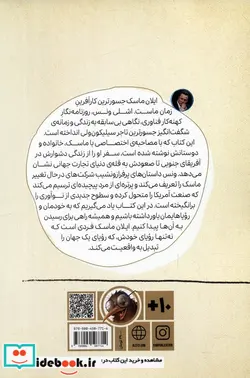 ایلان ماسک جسورترین کارآفرین
زمان ماست. اشلی ونس، روزنامه‌نگار
کهنه‌کار فناوری، نگاهی بی‌سابقه به زندگی و زمانه‌ی
شگفت‌انگیز جسورترین تاجر سیلیکون‌ولی انداخته است.
این کتاب که با مصاحبه‌ی اختصاصی با ماسک، خانواده و
دوستانش نوشته شده است، سفر او را از زندگی دشوارش در
آفریقای جنوبی تا صعودش به قله‌ی دنیای تجارت جهانی نشان
می‌دهد. ونس داستان‌های پرفرازونشیب شرکت‌های درحال تغییر
ماسک را تعریف می‌کند و پرتره‌ای از مرد پیچیده‌ای ترسیم می‌کند
که صنعت آمریکا را متحول کرده و سطوح جدیدی از نوآوری را
برانگیخته است. در این کتاب یاد می‌گیریم که به خودمان و
رؤیاهایمان باور داشته باشیم و همیشه راهی برای رسیدن
به آن‌ها پیدا کنیم. ایلان ماسک فردی است که
نه‌تنها رؤیای خودش، که رؤیای یک جهان را
تبدیل به واقعیت می‌کند.
+۱۰
آیده بوک
idebook.ir
مشاهده و خرید این کتاب در: